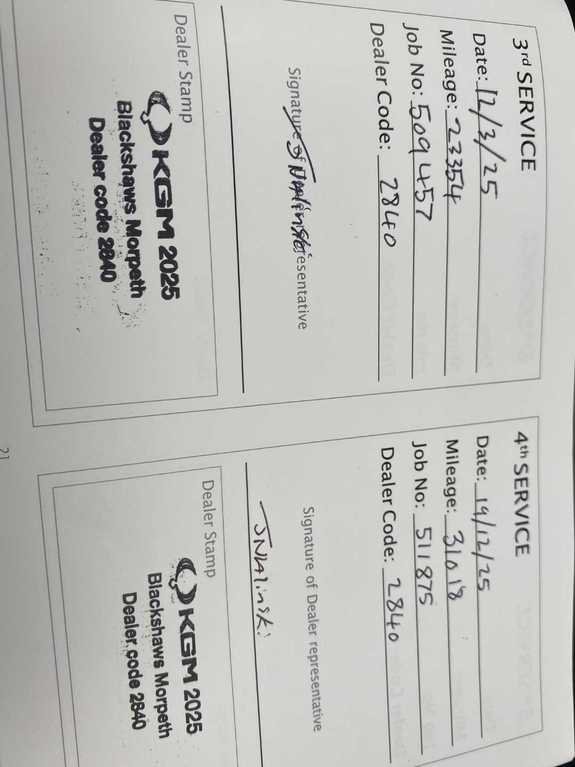 3rd SERVICE
Date: 12/3/25
Mileage: 23354
Job No: 509457
Dealer Code: 2840
Signature of Dealer representative
Dealer Stamp
KGM 2025
Blackshaws Morpeth
Dealer code 2840
4th SERVICE
Date: 19/12/25
Mileage: 31018
Job No: 511875
Dealer Code: 2840
Signature of Dealer representative
Dealer Stamp
KGM 2025
Blackshaws Morpeth
Dealer code 2840
21